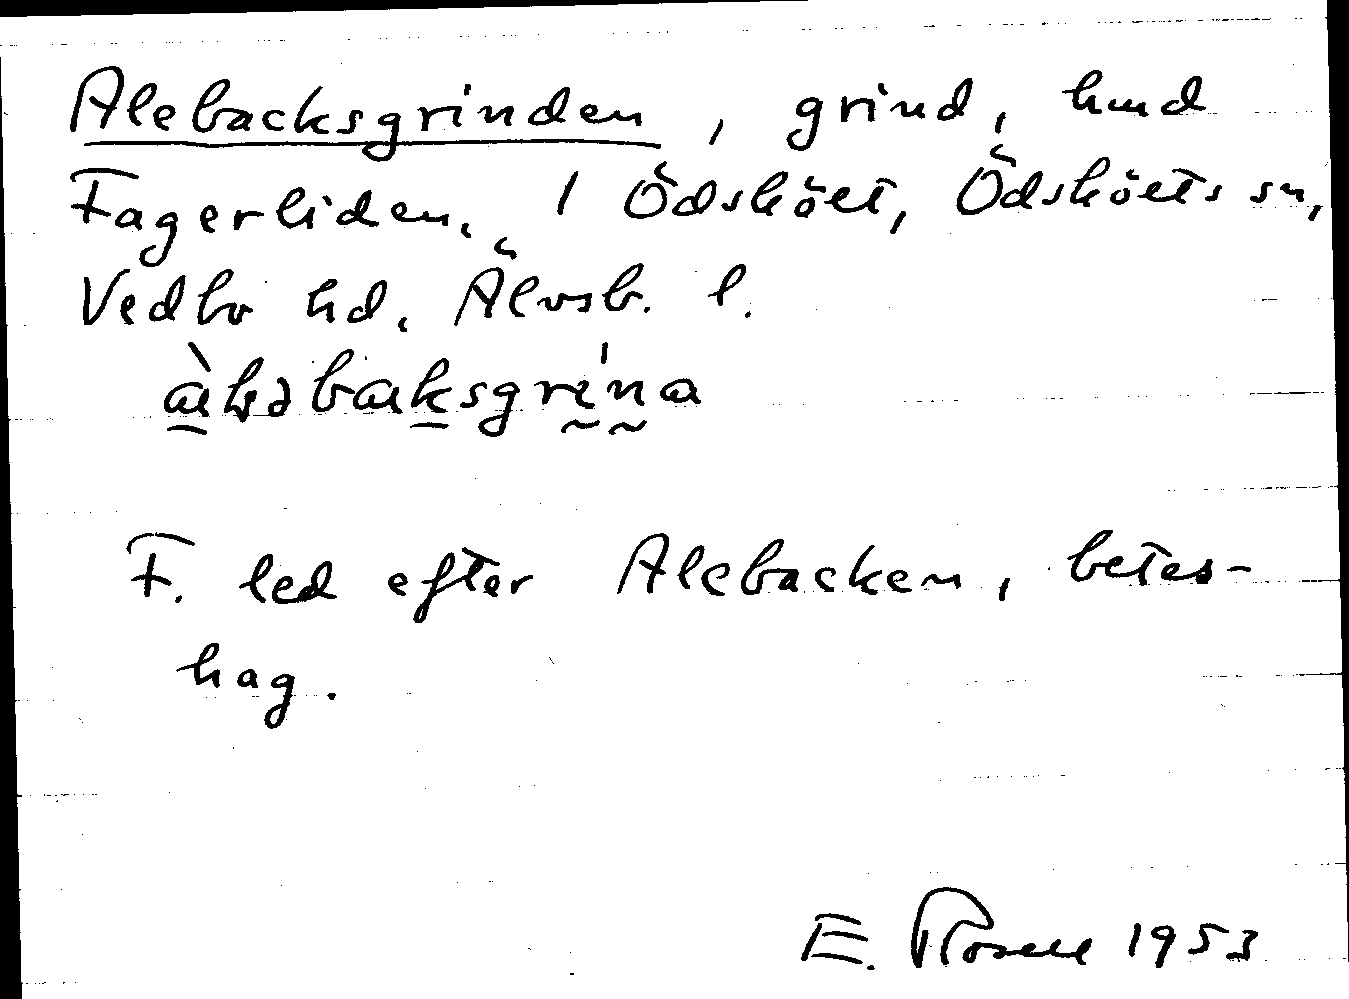 Alebacksgrinden, grind, hmd
Fagerliden, 1 Ödskölt, Ödskölts sn,
Vedbo hd, Älvsb. l.
F. led efter Alebacken, betes-
hag.
E. Rosell 1953